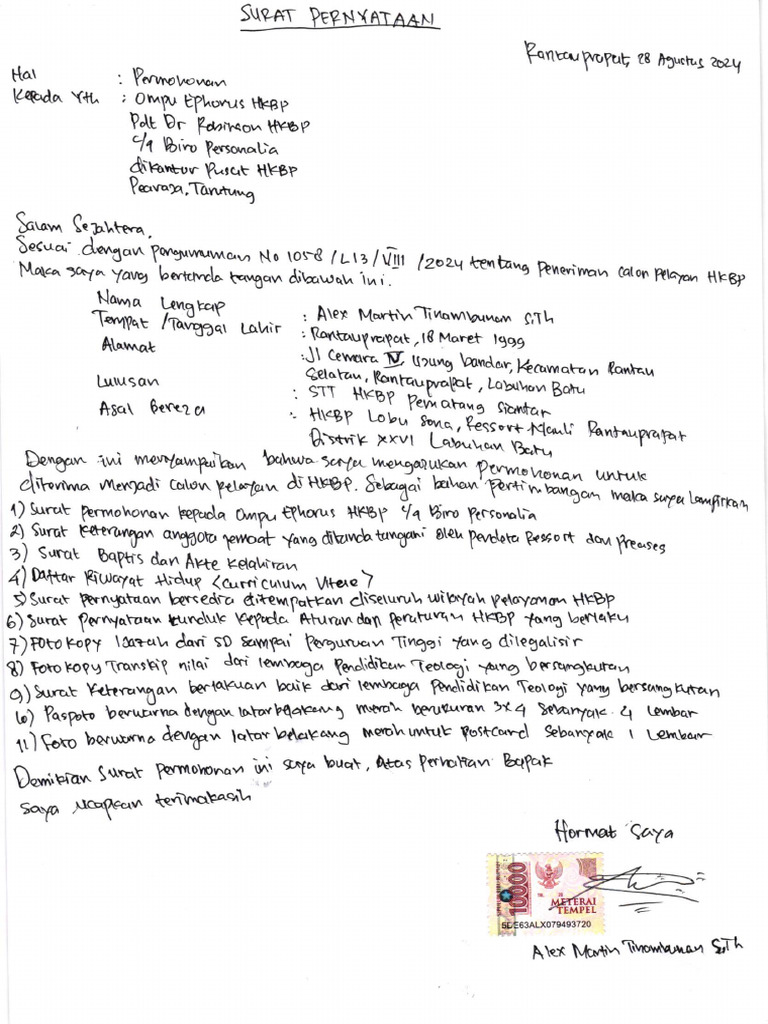 SURAT PERNYATAAN
Rantauprapat, 28 Agustus 2024
Hal : Permohonan
Kepada Yth : Ompu Ephorus HKBP
Pdt Dr Robinson HKBP
c/q Biro Personalia
dikantor Pusat HKBP
Pearaja, Tarutung
Salam Sejahtera,
Sesuai dengan pengumuman No 1058 / L13 / VIII / 2024 tentang Peneriman calon Pelayan HKBP
Maka saya yang bertanda tangan dibawah ini.
Nama Lengkap : Alex Martin Tinambunan S.Th
Tempat / Tanggal Lahir : Rantauprapat, 18 Maret 1999
Alamat : Jl Cemara IV, Ujung bandar, Kecamatan Rantau
Selatan, Rantauprapat, Labuhan Batu
Lulusan : STT HKBP Pematang Siantar
Asal Gereja : HKBP Lobu Sona, Ressort Mauli Rantauprapat
Distrik XXVI Labuhan Batu
Dengan ini menyampaikan bahwa saya mengajukan permohonan untuk
diterima menjadi calon pelayan di HKBP. Sebagai bahan Pertimbangan maka saya lampirkan
1) Surat permohonan kepada Ompu Ephorus HKBP c/q Biro Personalia
2) Surat Keterangan anggota jemaat yang ditanda tangani oleh pendeta Ressort dan Preases
3) Surat Baptis dan Akte Kelahiran
4) Daftar Riwayat Hidup <Curriculum Vitae>
5) Surat pernyataan bersedia ditempatkan diseluruh wilayah pelayanan HKBP
6) Surat Pernyataan tunduk kepada Aturan dan Peraturan HKBP yang berlaku
7) Foto Kopy Ijazah dari SD sampai Perguruan Tinggi yang dilegalisir
8) Foto Kopy Transkip nilai dari lembaga Pendidikan Teologi yang bersangkutan
9) Surat Keterangan berlakuan baik dari lembaga Pendidikan Teologi yang bersangkutan
10) Paspoto berwarna dengan latar belakang merah berukuran 3x4 Sebanyak 4 lembar
11) Foto berwarna dengan latar belakang merah untuk postcard Sebanyak 1 Lembar
Demikian Surat Permohonan ini saya buat, Atas Perhatian Bapak
saya ucapkan terimakasih
Hormat Saya
10000
METERAI
TEMPEL
5DE63ALX079493720
Alex Martin Tinambunan S.Th